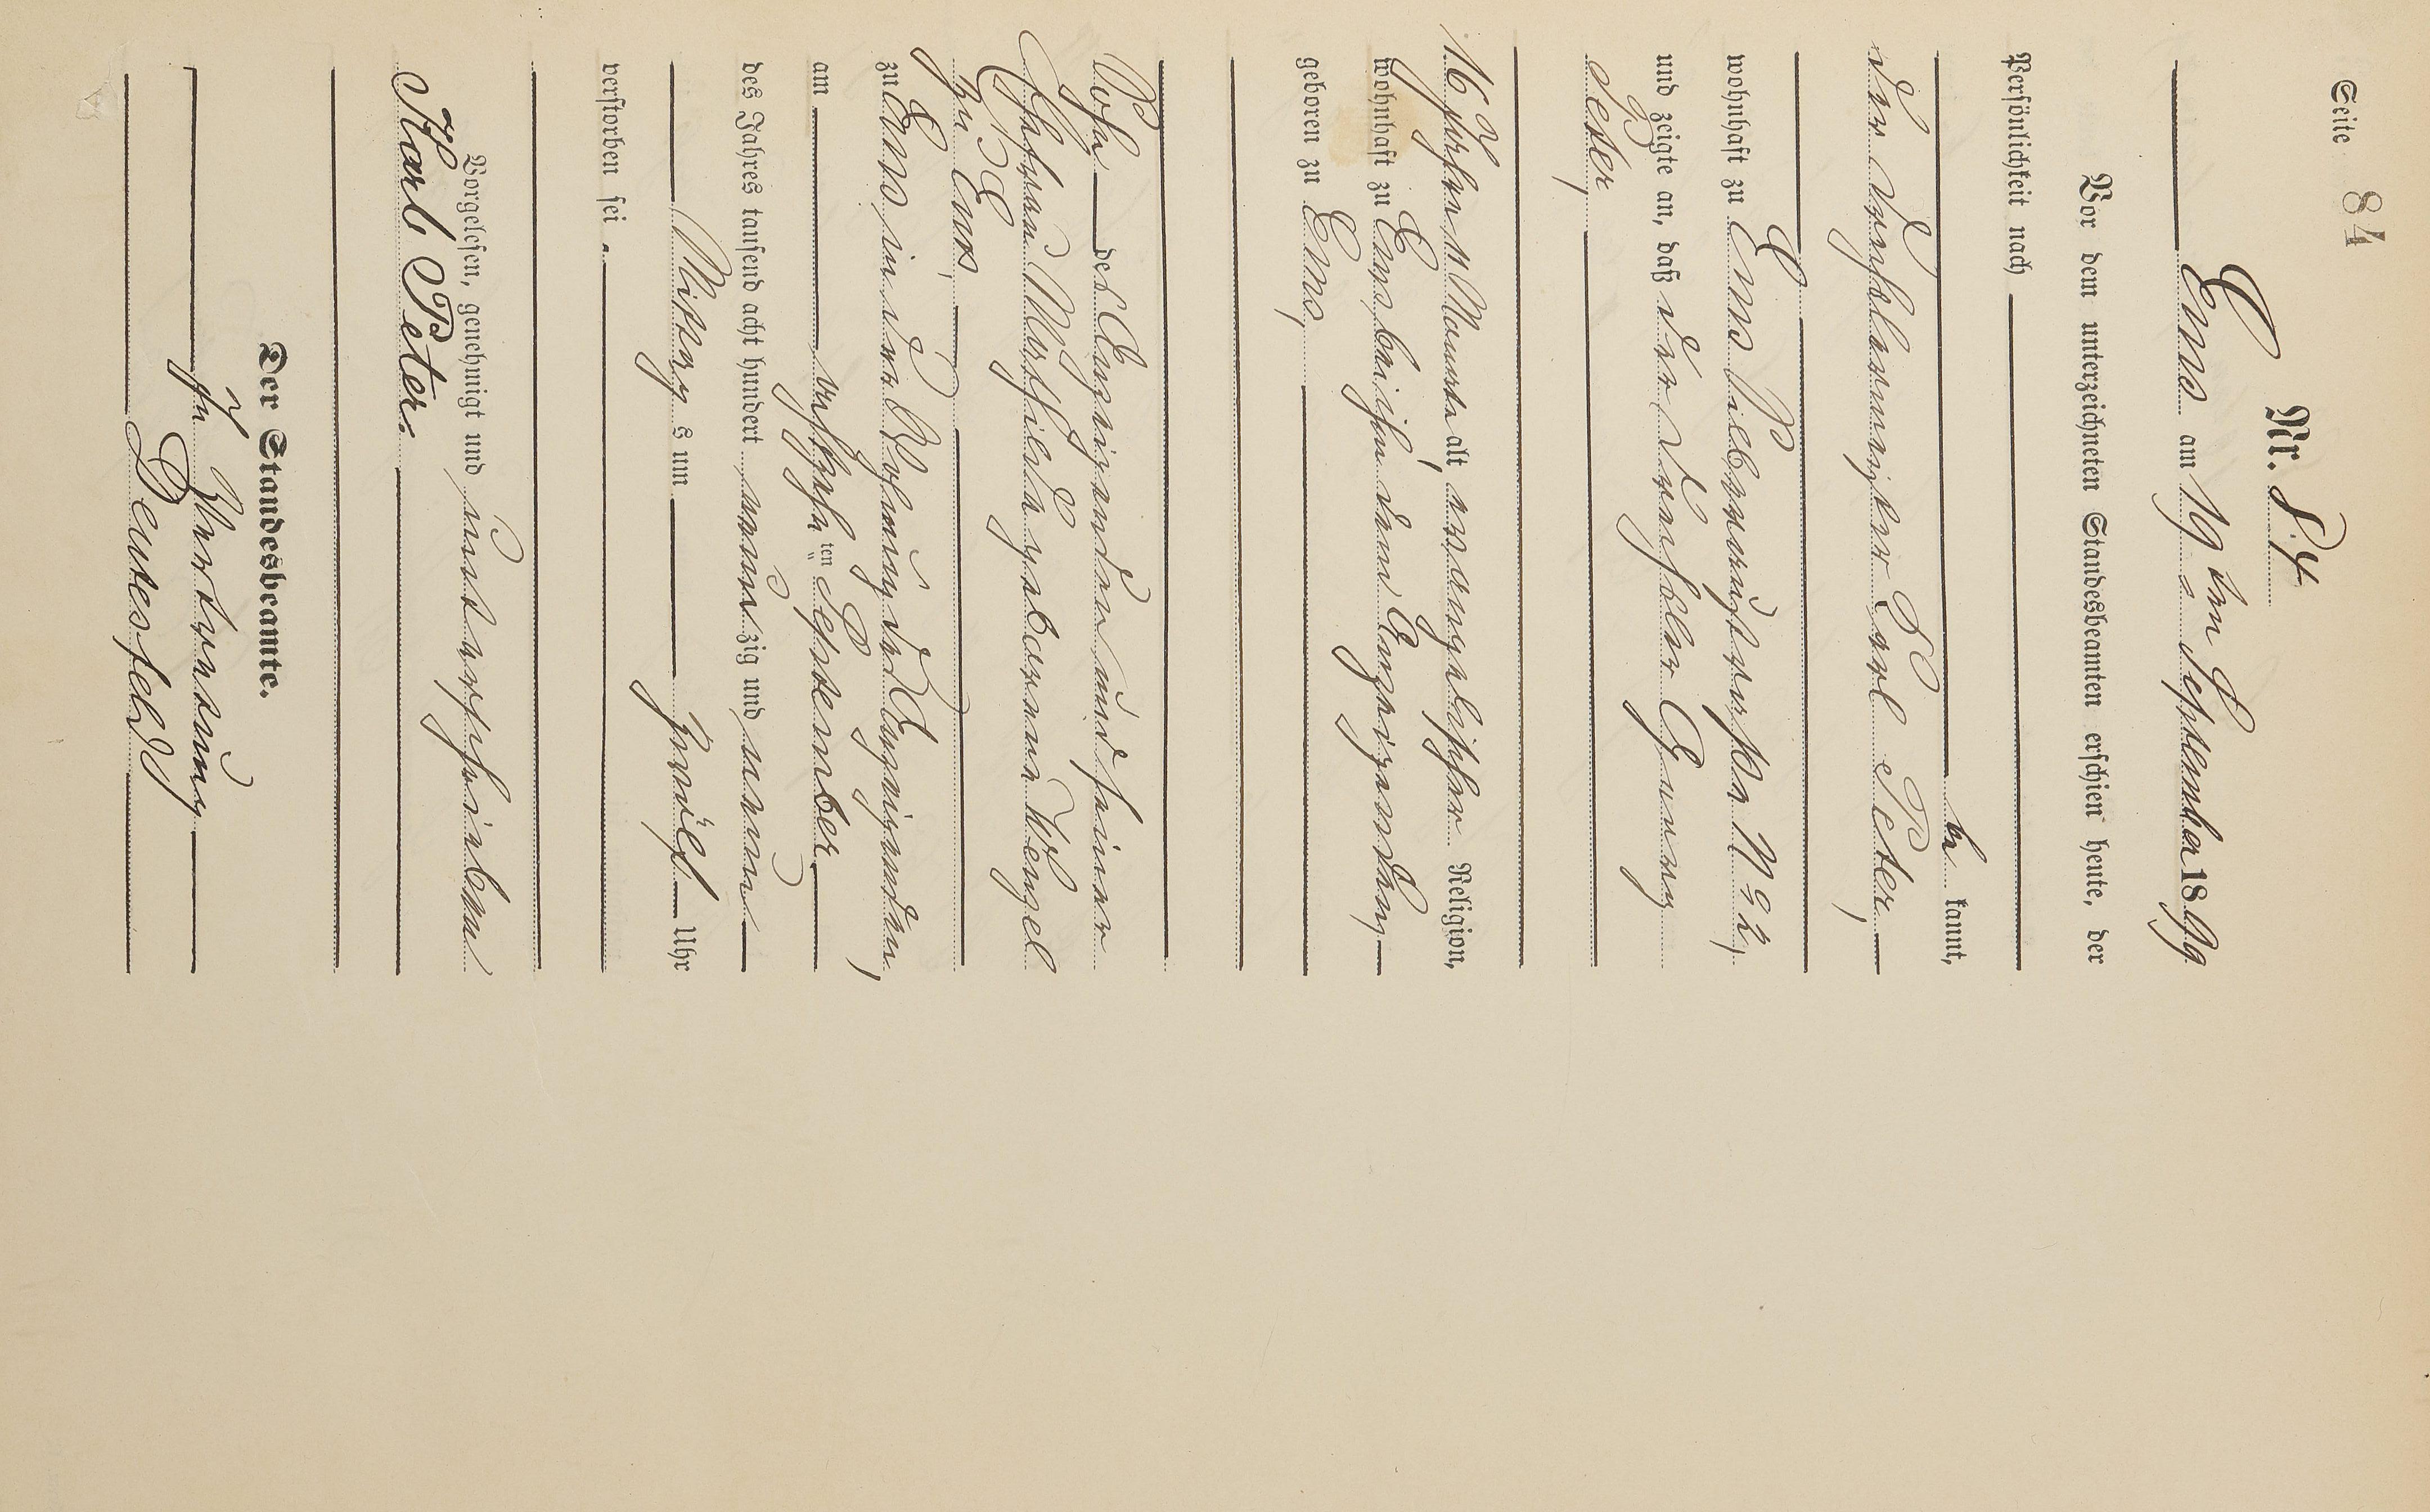 Seite 84
Nr. 84
Ems am 19ten September 1899
Vor dem unterzeichneten Standesbeamten erschien heute, der
Persönlichkeit nach
be kannt,
der Taglöhner Carl Peter,
wohnhaft zu Ems Silberaustraße No 2,
und zeigte an, daß der Georg
Peter,
16 Jahre 11 Monate alt, evangelischer Religion,
wohnhaft zu Ems, bei ihm dem Anzeigenden,
geboren zu Ems,
Sohn des Anzeigenden und seiner
Ehefrau Mathilde geborene Wenzel
zu Ems,
zu Ems, in der Wohnung des Anzeigenden,
am achtzehn ten September
des Jahres tausend acht hundert neun zig und neun
Mittag s um zwölf Uhr
verstorben sei.
Vorgelesen, genehmigt und unterschrieben
Karl Peter.
Der Standesbeamte.
In Vertretung
Deutesfeld